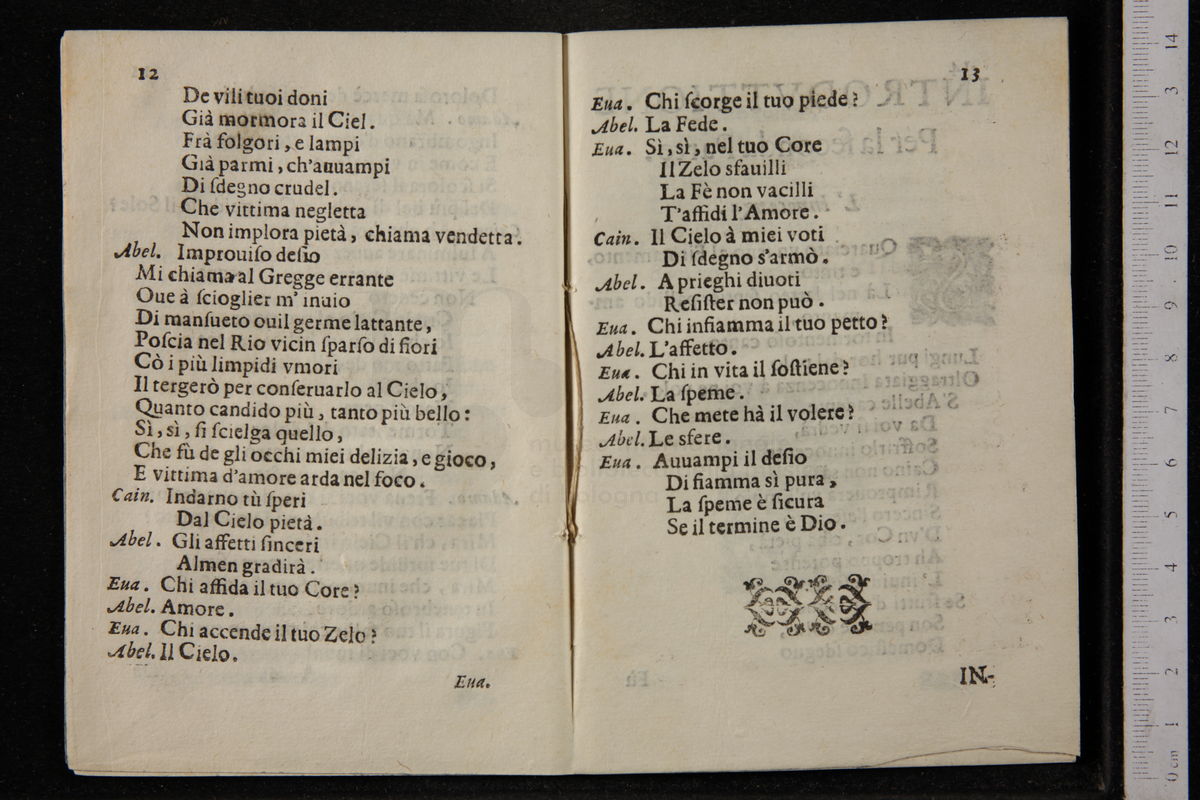 12
De vili tuoi doni
Già mormora il Ciel.
Frà folgori, e lampi
Già parmi, ch'auuampi
Di ſdegno crudel.
Che vittima negletta
Non implora pietà, chiama vendetta.
Abel. Improuiſo deſio
Mi chiama al Gregge errante
Oue à ſcioglier m' inuio
Di manſueto ouil germe lattante,
Poſcia nel Rio vicin ſparſo di fiori
Cò i più limpidi vmori
Il tergerò per conſeruarlo al Cielo,
Quanto candido più, tanto più bello:
Sì, sì, ſi ſcielga quello,
Che fù de gli occhi miei delizia, e gioco,
E vittima d'amore arda nel foco.
Cain. Indarno tù ſperi
Dal Cielo pietà.
Abel. Gli affetti ſinceri
Almen gradirà.
Eua. Chi affida il tuo Core?
Abel. Amore.
Eua. Chi accende il tuo Zelo?
Abel. Il Cielo.
Eua.
13
Eua. Chi ſcorge il tuo piede?
Abel. La Fede.
Eua. Sì, sì, nel tuo Core
Il Zelo sfauilli
La Fè non vacilli
T'affidi l'Amore.
Cain. Il Cielo à miei voti
Di ſdegno s'armò.
Abel. A prieghi diuoti
Reſiſter non può.
Eua. Chi infiamma il tuo petto?
Abel. L'affetto.
Eua. Chi in vita il ſoſtiene?
Abel. La ſpeme.
Eua. Che mete hà il volere?
Abel. Le sfere.
Eua. Auuampi il deſio
Di fiamma sì pura,
La ſpeme è ſicura
Se il termine è Dio.
IN-